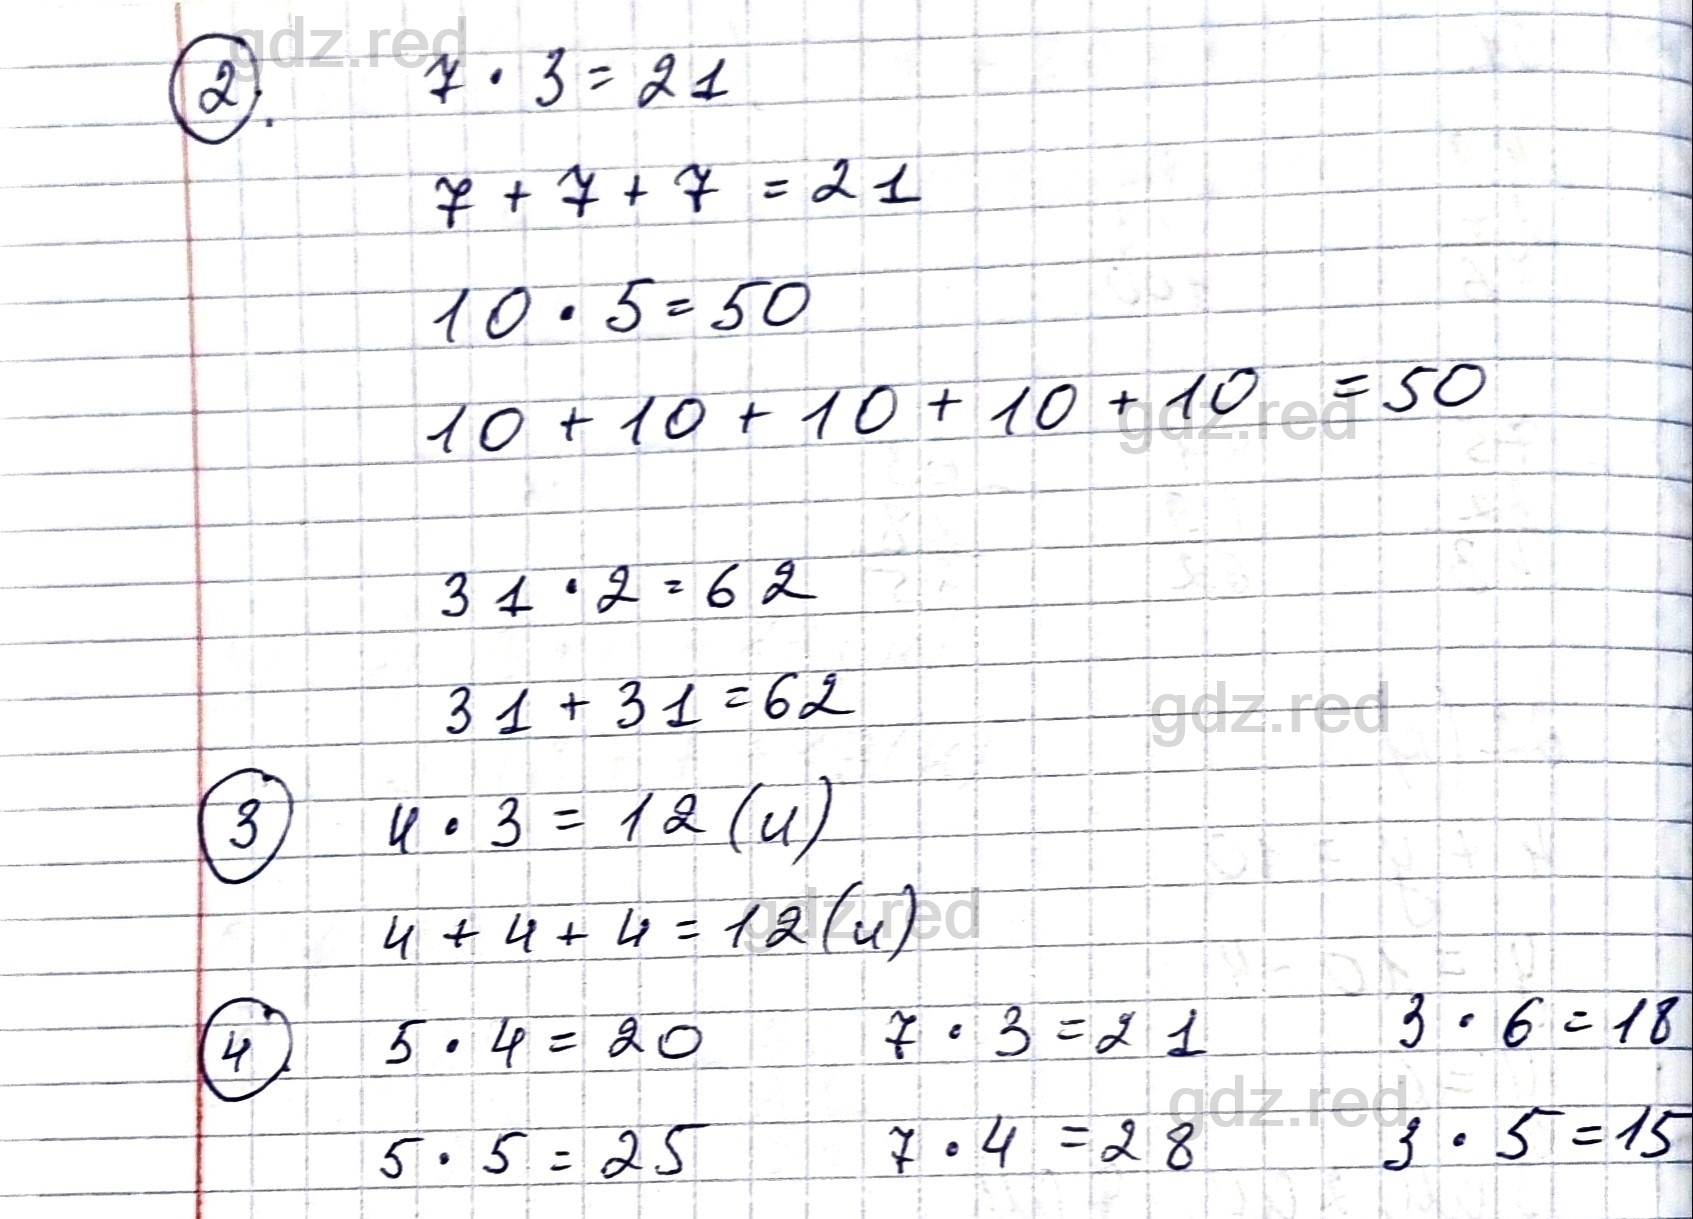 gdz.red
2. 7 · 3 = 21
7 + 7 + 7 = 21
10 · 5 = 50
10 + 10 + 10 + 10 + 10 = 50
gdz.red
31 · 2 = 62
31 + 31 = 62
gdz.red
3 4 · 3 = 12 (ч)
4 + 4 + 4 = 12 (ч)
gdz.red
4. 5 · 4 = 20 7 · 3 = 21 3 · 6 = 18
gdz.red
5 · 5 = 25 7 · 4 = 28 3 · 5 = 15